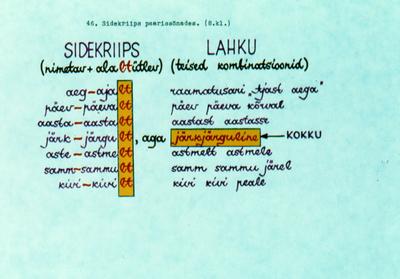 46. Sidekriips paarissõnades. (8.kl.)
SIDEKRIIPS LAHKU
(nimetav + alaltütlev) (teised kombinatsioonid)
aeg-ajalt raamatusari „Ajast aega"
päev-päevalt päev päeva kõrval
aasta-aastalt aastast aastasse
järk-järgult, aga järkjärguline KOKKU
aste-astmelt astmelt astmele
samm-sammult samm sammu järel
kivi-kivilt kivi kivi peale